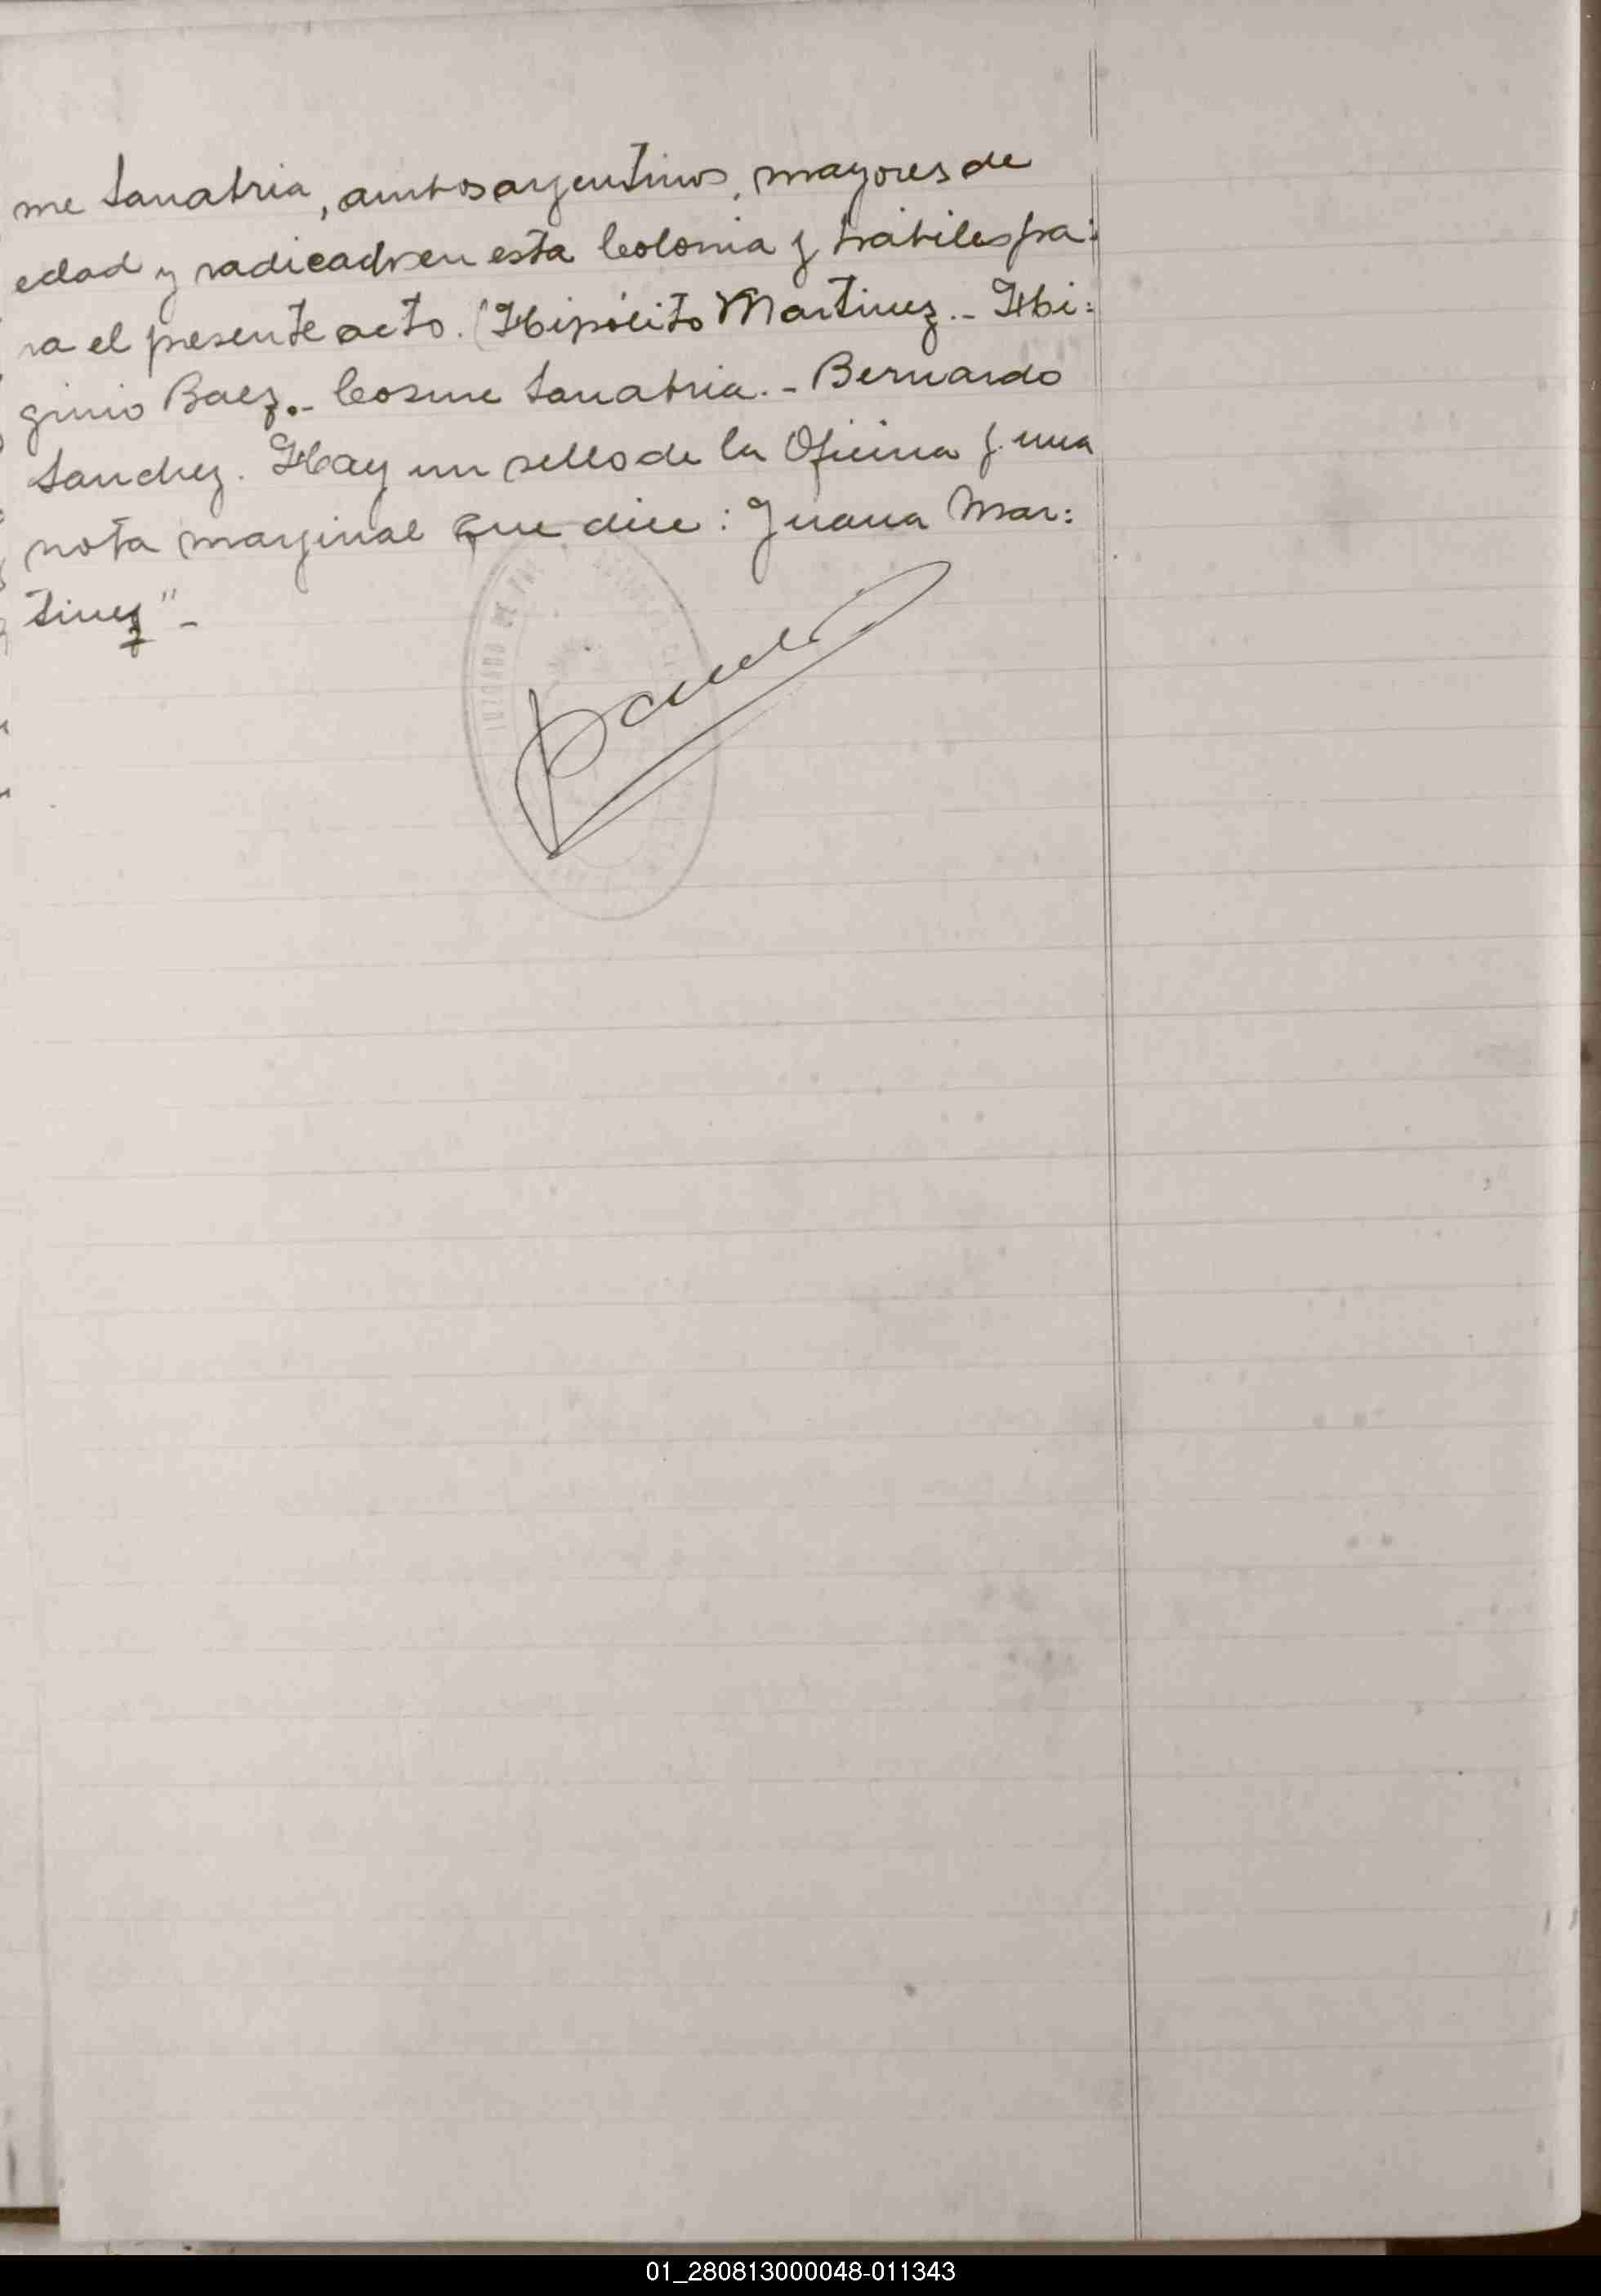 me Sanabria, ambos argentinos, mayores de
edad y radicados en esta Colonia y habiles pa:
ra el presente acto. (Hipólito Martinez.- Hi:
ginio Baez.- Cosme Sanabria.- Bernardo
Sanchez. Hay un sello de la Oficina y una
nota marginal que dice: Juana Mar:
tinez"-
JUZGADO DE PAZ
01_280813000048-011343